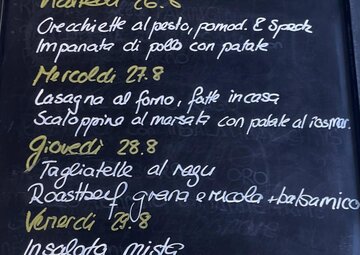 Martedì 26.8
Orecchiette al pesto, pomod. E Speck
Impanata di pollo con patate
Mercoldi 27.8
Lasagna al forno, fatte in casa
Scaloppine al marsala con patate al rosmar.
Giovedì 28.8
Tagliatelle al ragu
Roastbeef grana e rucola + balsamico
Venerdi 29.8
Insalata mista